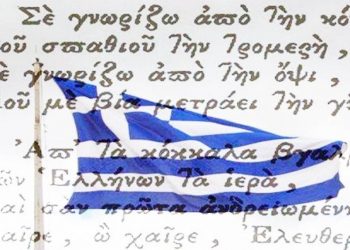 Σὲ γνωρίζω ἀπὸ τὴν κό
οῦ σπαθιοῦ τὴν τρομερή,
ὲ γνωρίζω ἀπὸ τὴν ὄψι,
οῦ μὲ βία μετράει τὴν γῆ
Ἀπ' τὰ κόκκαλα βγαλ
ῶν Ἑλλήνων τὰ ἱερὰ,
αὶ σὰν πρῶτα ἀνδρειωμέν
αῖρε, ὦ χαῖρε, Ἐλευθερ